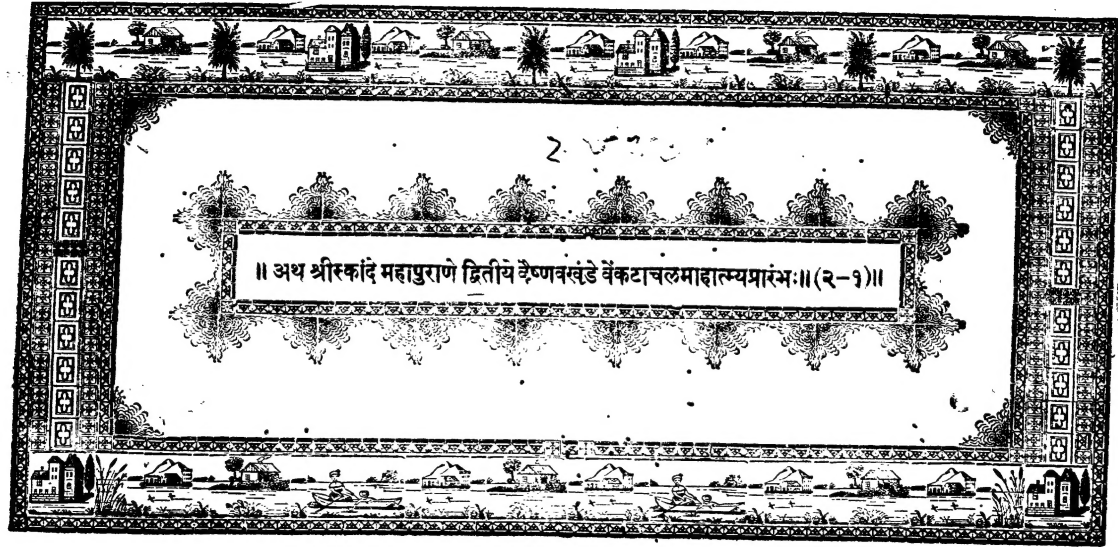 ॥ अथ श्रीस्कांदे महापुराणे द्वितीये वैष्णवखंडे वेंकटाचलमाहात्म्यप्रारंभः॥(२-१)॥